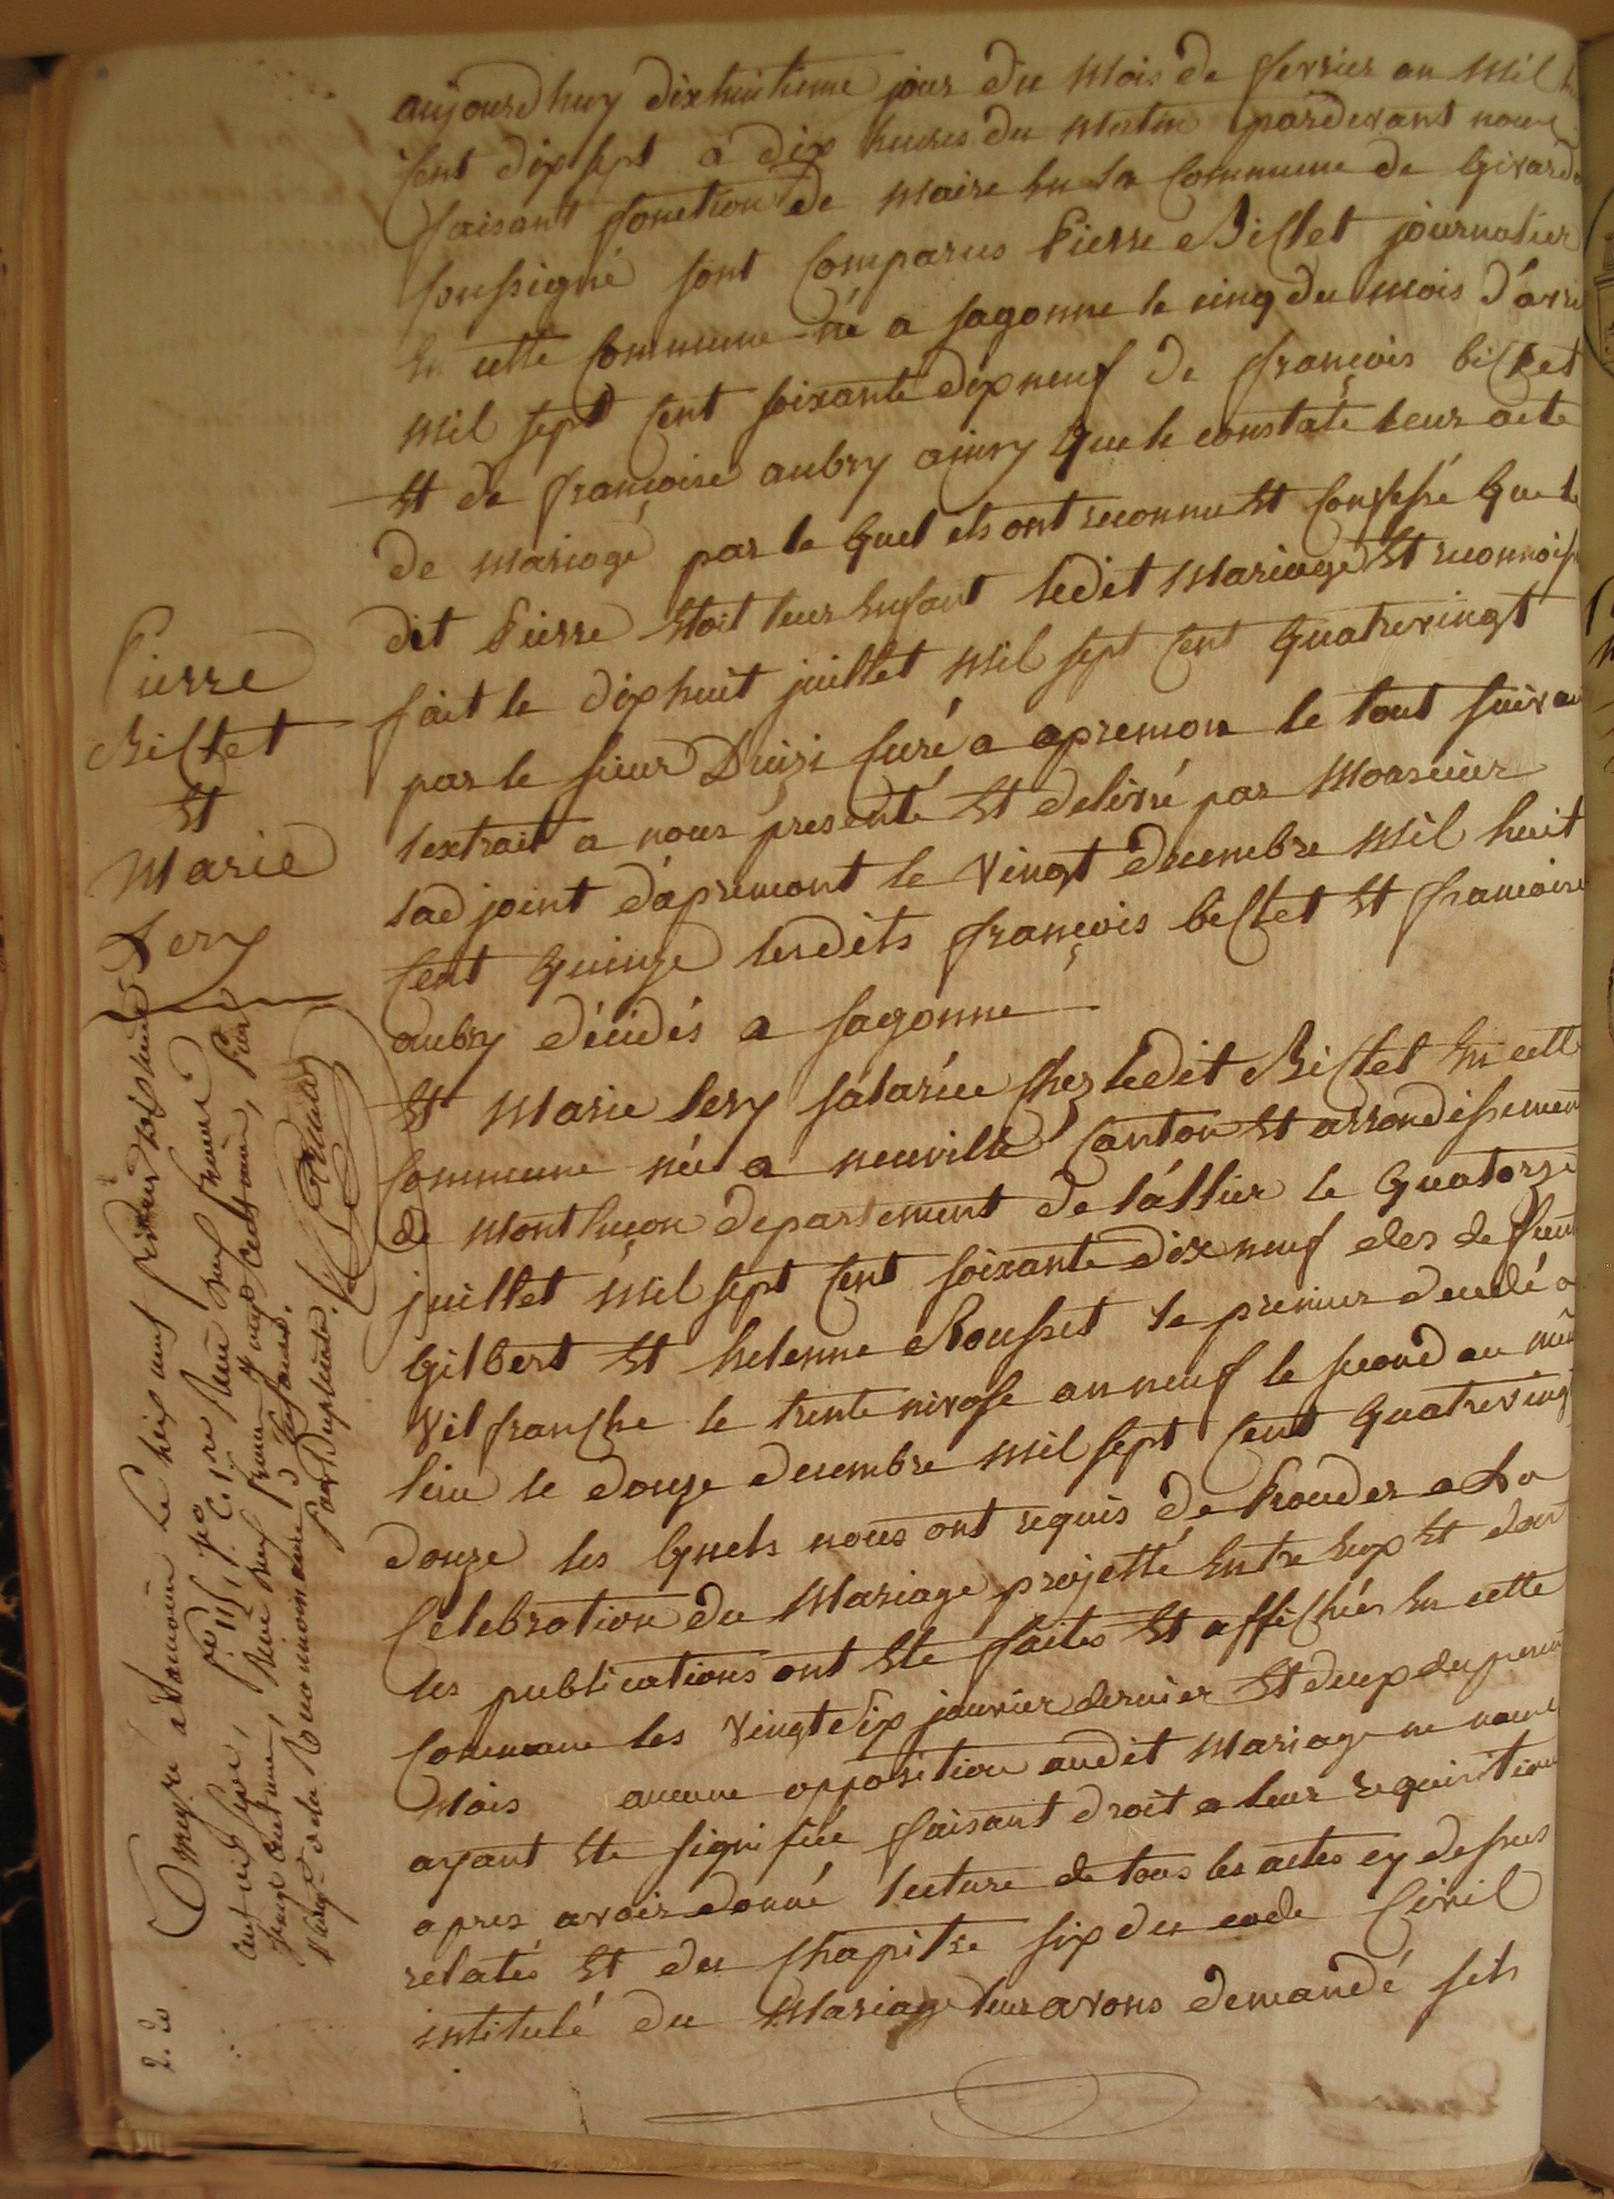 aujourdhuy dixhuitieme jour du mois de fevrier an mil
cent dix sept a dix heures du matin pardevant nous
faisant fonction de maire en la commune de Givard
soussigné sont comparus Pierre Bistet journalier
en cette commune né a sagonne le cinq du mois d'avri
mil sept cent soixante dix neuf de françois bistet
et de françoise aubry ainsy que le constate leur acte
de mariage par le quel ils ont reconnu et confessé que le
dit Pierre Etoit leur Enfant ledit mariage Et reconnoiss
fait le dix huit juillet mil sept cent quatrevingt
par le sieur curé a apremon le tout suivan
lextrait a nous presenté Et delivré par Monsieur
ladjoint d'apremont le vingt decembre mil huit
cent quinze lesdits françois bistet et francoise
aubry décédés a sagonne
Et Marie Lery salariée chez ledit Bistet En cette
commune née a neuville canton Et arrondissement
de montluçon departement de l'allier le quatorze
juillet mil sept cent soixante dix neuf des defeun
Gilbert Et helenne Rousset le premier decedé a
vilfranche le trente nivose an neuf le second au mêm
lieu le douze decembre mil sept cent quatrevingt
douze les quels nous ont requis de proceder a La
celebration du Mariage projetté Entre Eux Et dont
les publications ont Ete faites Et affichées En cette
commune les vingt six janvier dernier Et deux du presen
mois aucune opposition audit mariage ne nous
ayant Ete signifiée faisant droit a leur requisition
apres avoir donné lecture de tous les actes cy dessus
relatés Et du chapitre six du code Civil
intitulé du Mariage leur avons demandé sils
Pierre
Bistet
Et
Marie
Lery
Enregistré a
par Duplicata.
2. de